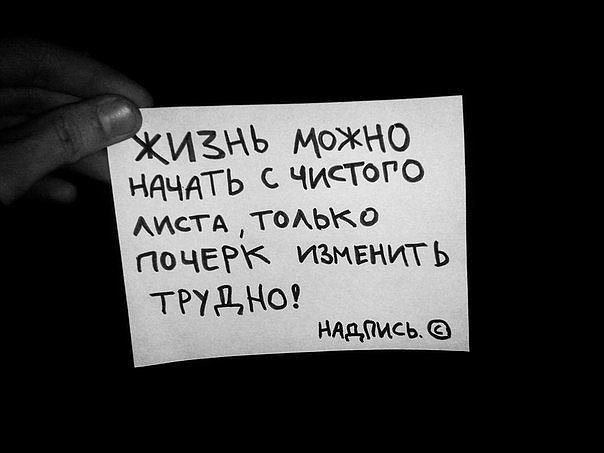 ЖИЗНЬ МОЖНО
НАЧАТЬ С ЧИСТОГО
ЛИСТА, ТОЛЬКО
ПОЧЕРК ИЗМЕНИТЬ
ТРУДНО!
НАДПИСЬ. ©